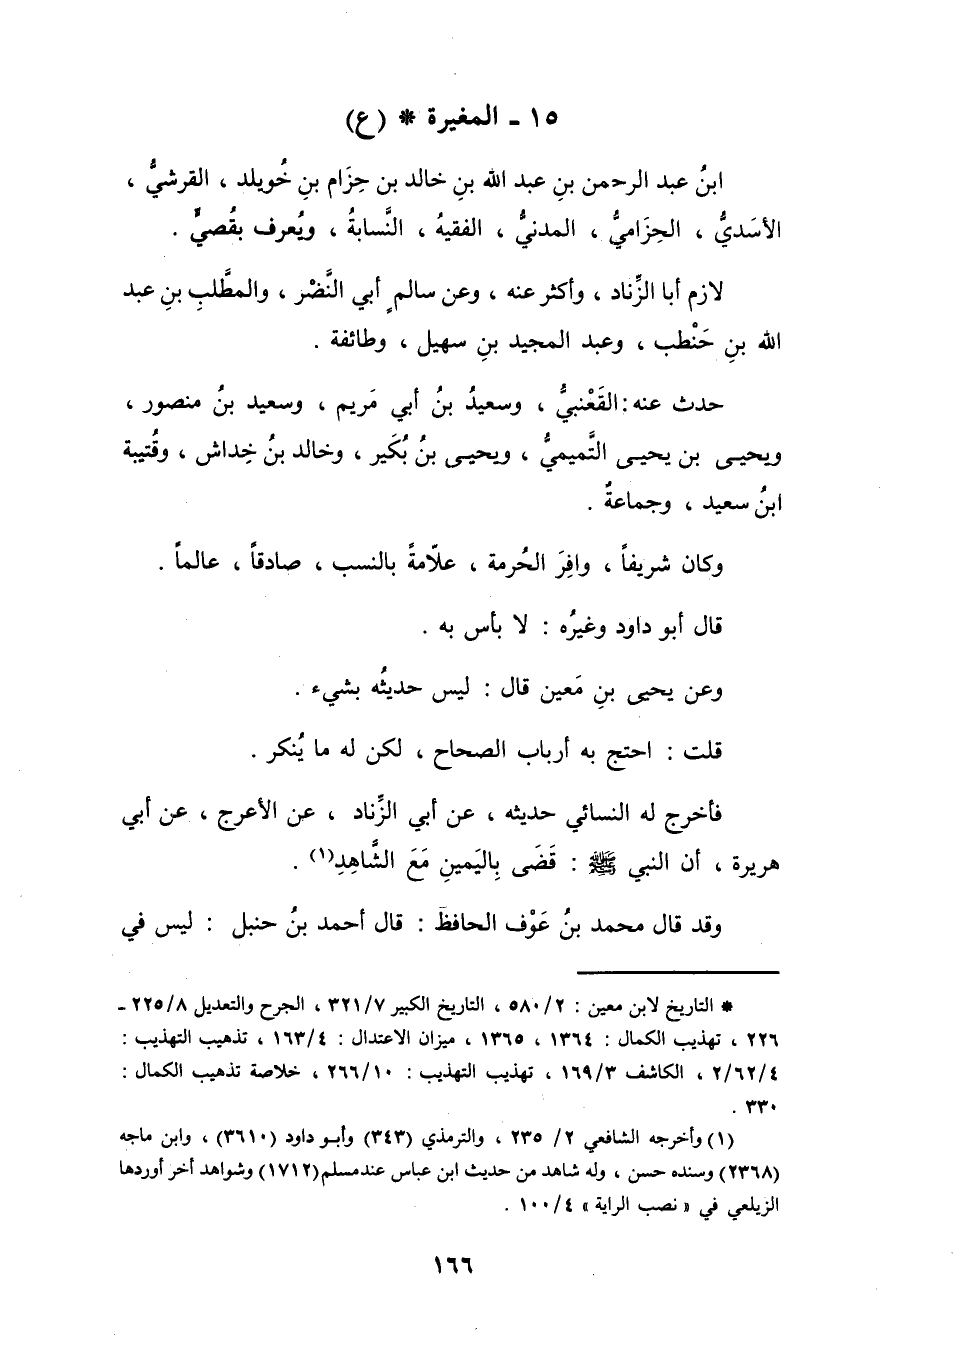 ١٥ ـ المغيرة * (ع)
ابنُ عبد الرحمن بنِ عبد الله بنِ خالد بن حِزَام بنِ خُويلد ، القرشيُّ ،
الأسَديُّ ، الحِزَاميُّ ، المدنيُّ ، الفقيهُ ، النَّسابةُ ، ويُعرف بقُصيٍّ .
لازم أبا الزِّناد ، وأكثر عنه ، وعن سالمٍ أبي النَّضْر ، والمطَّلبِ بنِ عبد
الله بنِ حَنْطب ، وعبد المجيد بنِ سهيل ، وطائفة .
حدث عنه : القَعْنبيُّ ، وسعيدُ بنُ أبي مَريم ، وسعيد بنُ منصور ،
ويحيـى بن يحيـى التَّميميُّ ، ويحيـى بنُ بُكَير ، وخالد بنُ خِداش ، وقُتيبة
ابنُ سعيد ، وجماعةٌ .
وكان شريفاً ، وافِرَ الحُرمة ، علّامةً بالنسب ، صادقاً ، عالماً .
قال أبو داود وغيرُه : لا بأس به .
وعن يحيى بنِ مَعين قال : ليس حديثُه بشيء .
قلت : احتج به أرباب الصحاح ، لكن له ما يُنكر .
فأخرج له النسائي حديثه ، عن أبي الزِّناد ، عن الأعرج ، عن أبي
هريرة ، أن النبي ﷺ : قَضَى بِاليَمينِ مَعَ الشَّاهِدِ(١) .
وقد قال محمد بنُ عَوْف الحافظَ : قال أحمد بنُ حنبل : ليس في
* التاريخ لابن معين : ٥٨٠/٢ ، التاريخ الكبير ٣٢١/٧ ، الجرح والتعديل ٢٢٥/٨ ـ
٢٢٦ ، تهذيب الكمال : ١٣٦٤ ، ١٣٦٥ ، ميزان الاعتدال : ١٦٣/٤ ، تذهيب التهذيب :
٢/٦٢/٤ ، الكاشف ١٦٩/٣ ، تهذيب التهذيب : ٢٦٦/١٠ ، خلاصة تذهيب الكمال :
٣٣٠ .
(١) وأخرجه الشافعي ٢/ ٢٣٥ ، والترمذي (٣٤٣) وأبـو داود (٣٦١٠) ، وابن ماجه
(٢٣٦٨) وسنده حسن ، وله شاهد من حديث ابن عباس عند مسلم (١٧١٢) وشواهد أخر أوردها
الزيلعي في « نصب الراية » ١٠٠/٤ .
١٦٦